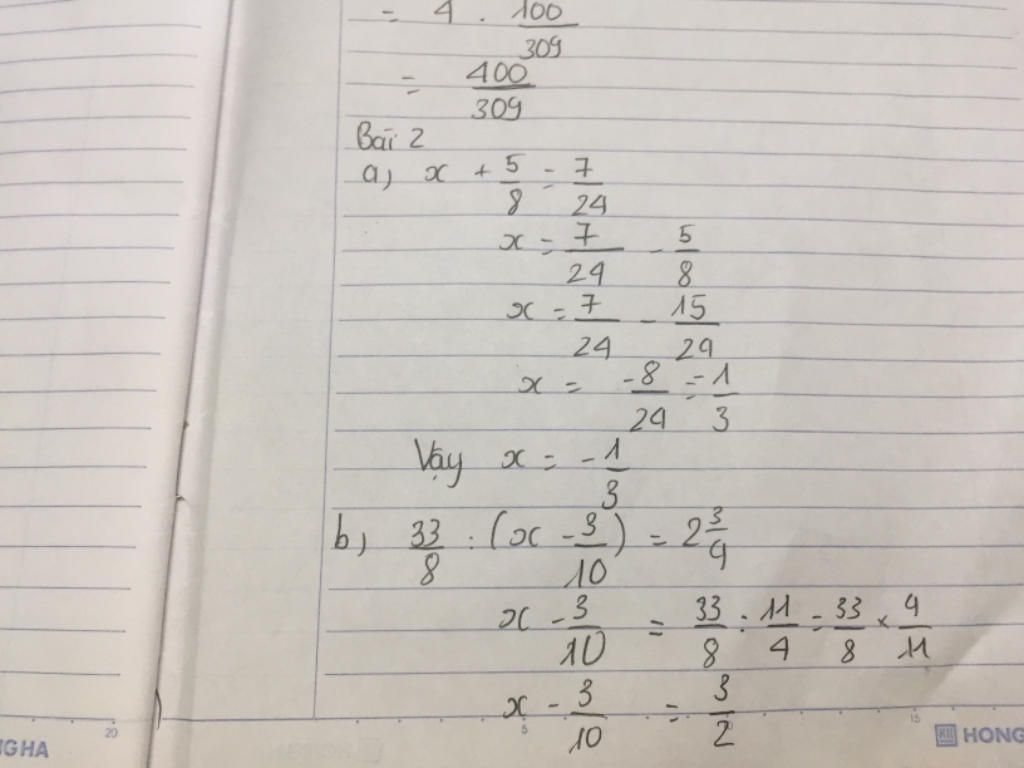 = 4 . 100/309
= 400/309
Bài 2
a, x + 5/8 = 7/24
x = 7/24 - 5/8
x = 7/24 - 15/24
x = -8/24 = -1/3
Vậy x = -1/3
b, 33/8 : (x - 3/10) = 2 3/4
x - 3/10 = 33/8 : 11/4 = 33/8 × 4/11
x - 3/10 = 3/2
20
5
15
NGHA
HONG